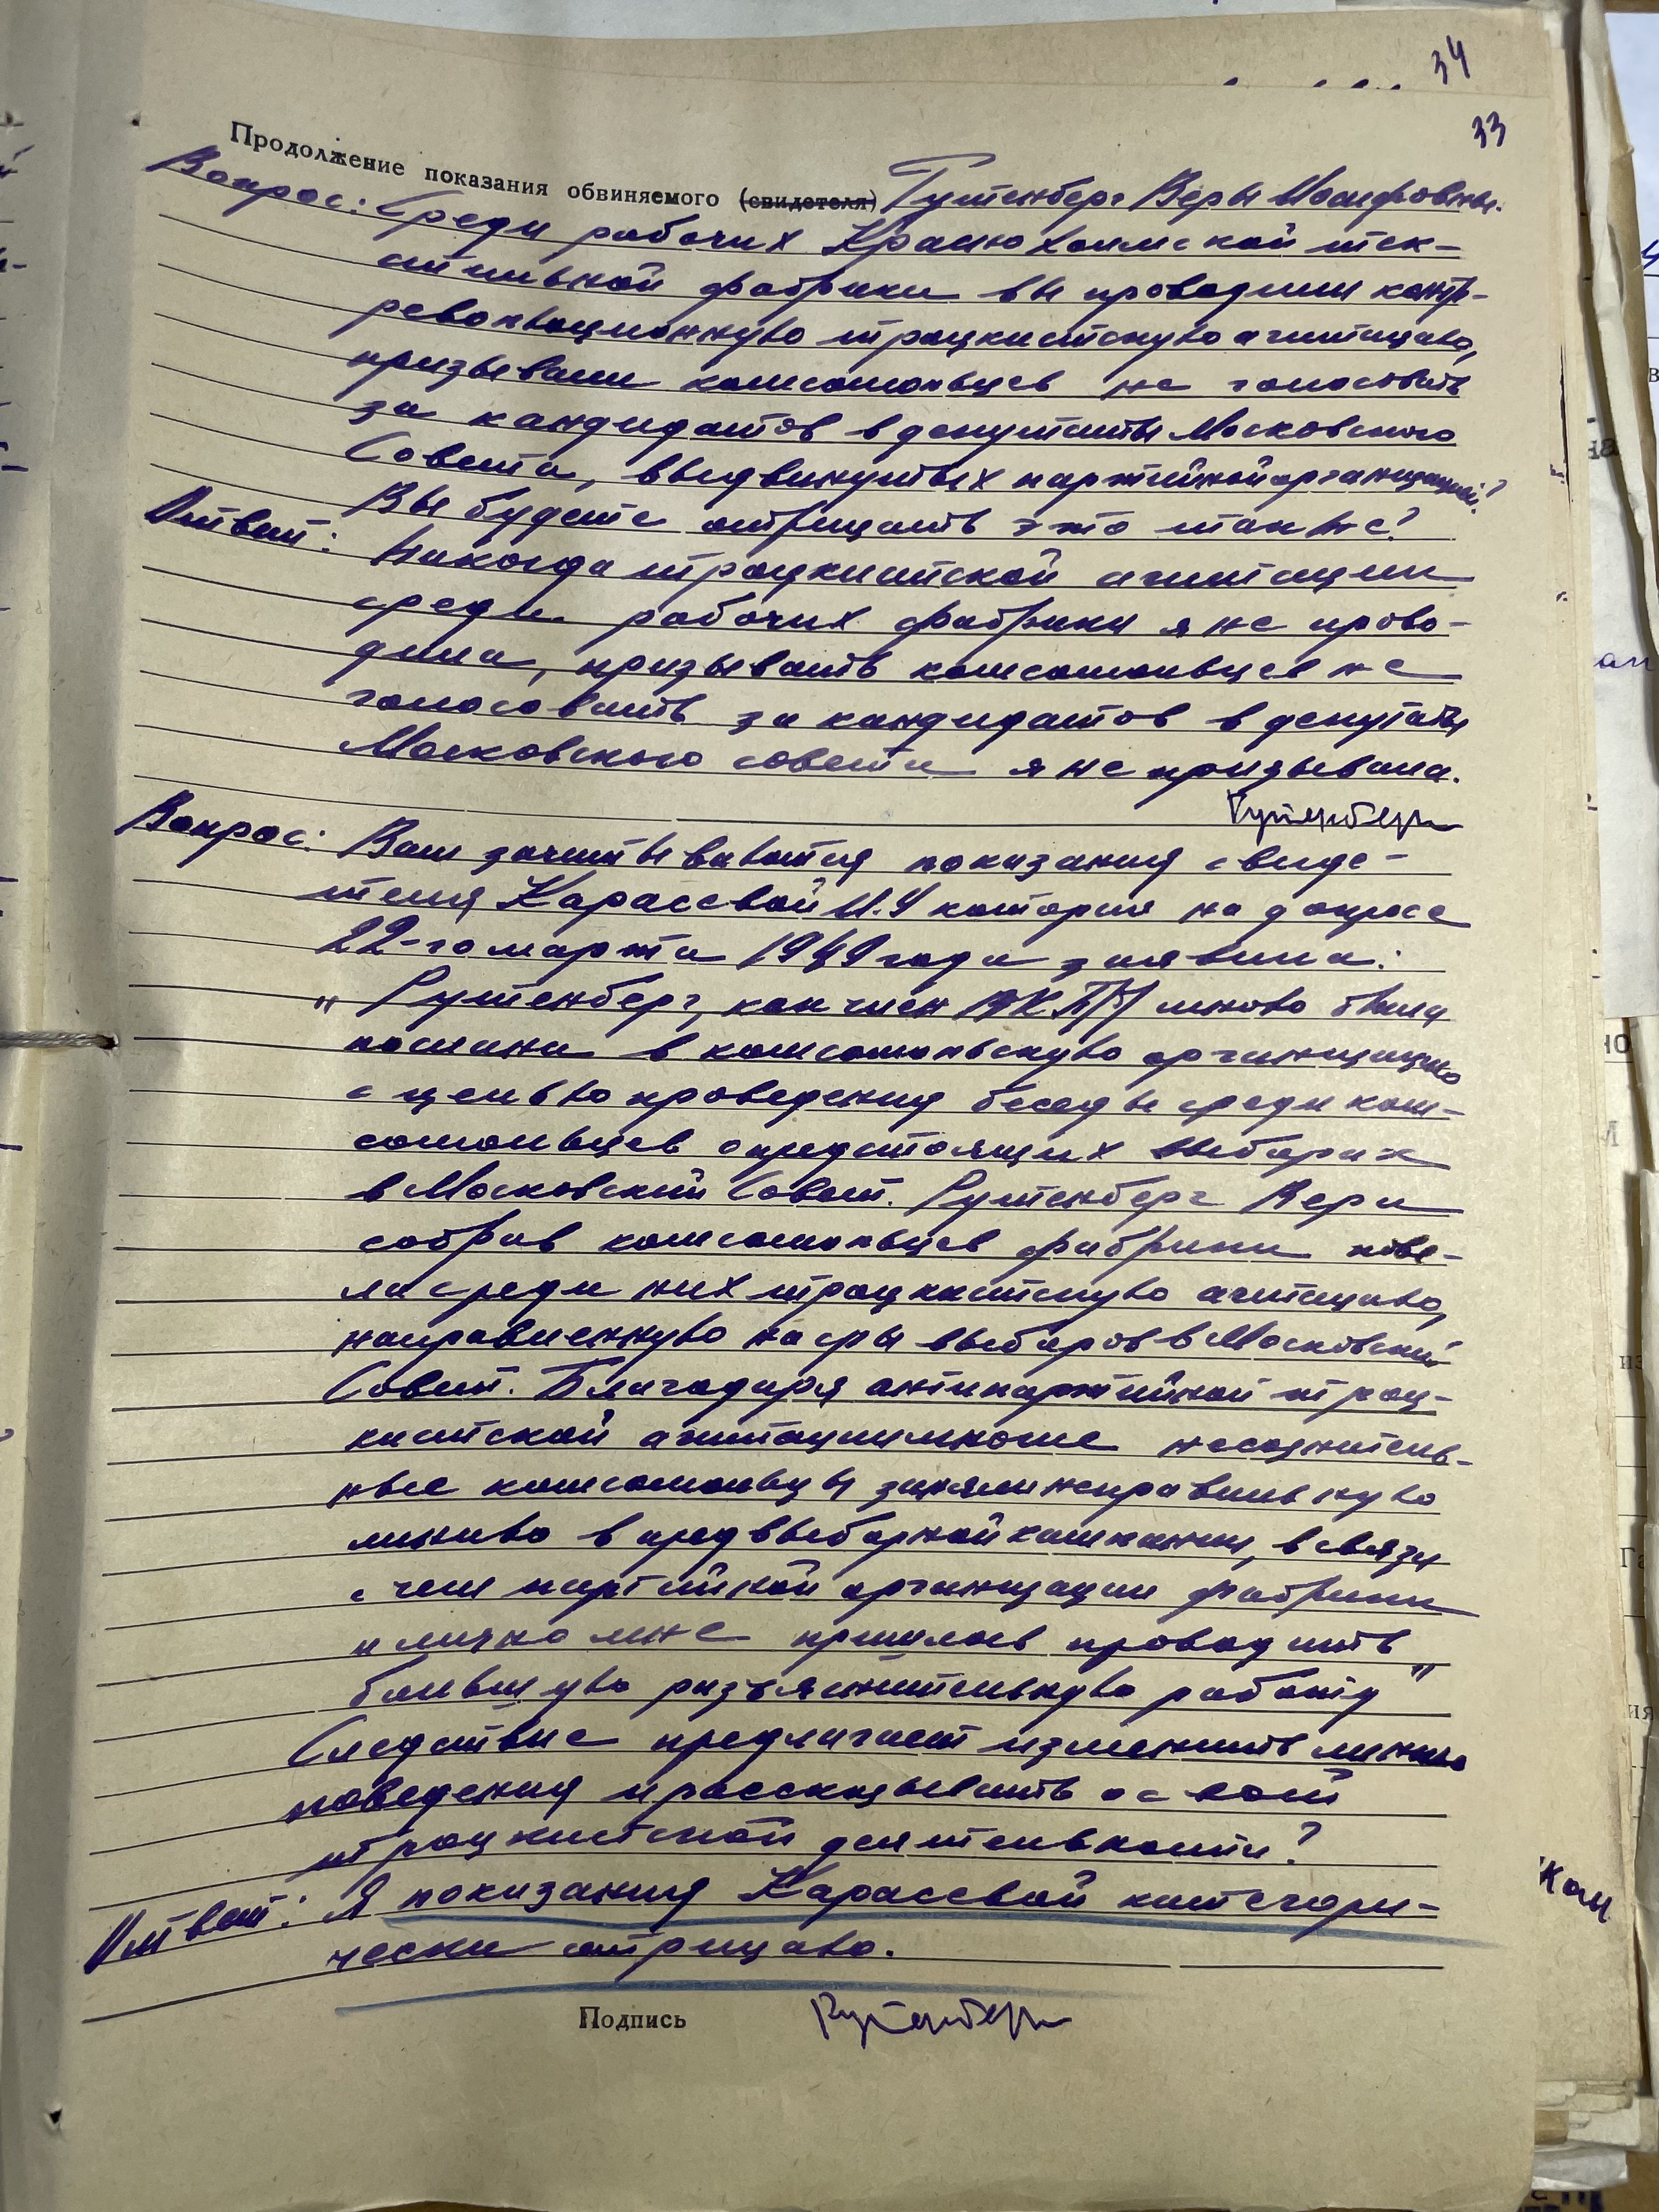 34
33
Продолжение показания обвиняемого (свидетеля) Рутенберг Веры Иосифовны.
Вопрос: Среди рабочих Краснохолмской тек-
стильной фабрики вы проводили контр-
революционную троцкистскую агитацию,
призывали комсомольцев не голосовать
за кандидатов в депутаты Московского
Совета, выдвинутых партийной организацией?
Вы будете отрицать это также?
Ответ: Никогда троцкистской агитации
среди рабочих фабрики я не прово-
дила, призывать комсомольцев не
голосовать за кандидатов в депутаты
Московского совета я не призывала.
Рутенберг
Вопрос: Вам зачитываются показания свиде-
теля Карасевой которая на допросе
22-го марта 1949 года заявила:
„Рутенберг, как член мною была
послана в комсомольскую организацию
с целью проведения беседы среди ком-
сомольцев о предстоящих выборах
в Московский Совет. Рутенберг Вера
собрав комсомольцев фабрики пове-
ла среди них троцкистскую агитацию,
направленную на срыв выборов в Московский
Совет. Благодаря антипартийной троц-
кистской агитации многие несознатель-
ные комсомольцы заняли неправильную
линию в предвыборной кампании, в связи
с чем партийной организации фабрики
и лично мне пришлось проводить
большую разъяснительную работу"
Следствие предлагает изменить линию
поведения и рассказывать о своей
троцкистской деятельности?
Ответ: Я показания Карасевой категори-
чески отрицаю.
Подпись Рутенберг
Кам